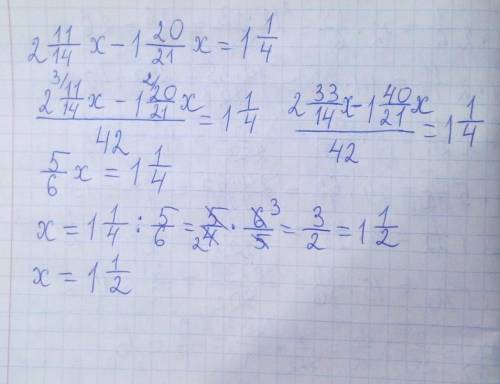 2 11/14 x - 1 20/21 x = 1 1/4
(2 ³⁄11/14 x - 1 ²⁄20/21 x)/42 = 1 1/4 (2 33/14 x - 1 40/21 x)/42 = 1 1/4
5/6 x = 1 1/4
x = 1 1/4 : 5/6 = 5/₂4 · 6³/5 = 3/2 = 1 1/2
x = 1 1/2